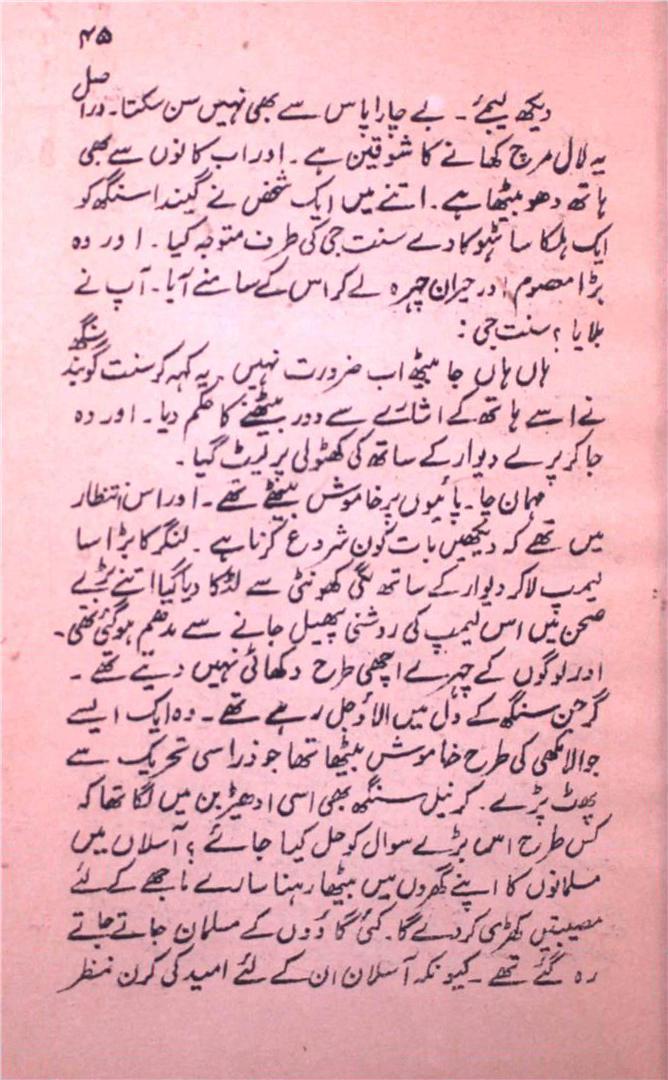 ۴۵
دیکھ لیجئے ۔ بے چارا پاس سے بھی نہیں سن سکتا۔ دراصل
یہ لال مرچ کھانے کا شوقین ہے ۔ اور اب کانوں سے بھی
ہاتھ دھو بیٹھا ہے ۔ اتنے میں ایک شخص نے گیندا سنگھ کو
ایک ہلکا سا ٹہوکا دے سنت جی کی طرف متوجہ کیا ۔ اور وہ
بڑا معصوم اور حیران چہرہ لے کر اس کے سامنے آیا۔ آپ نے
بلایا ؟ سنت جی :
ہاں ہاں جا بیٹھ اب ضرورت نہیں ۔ یہ کہہ کر سنت گوبند سنگھ
نے اسے ہاتھ کے اشارے سے دور بیٹھنے کا حکم دیا ۔ اور وہ
جا کر پرے دیوار کے ساتھ کی کھٹولی پر لیٹ گیا ۔
مہمان چارپائیوں پر خاموش بیٹھے تھے ۔ اور اس انتظار
میں تھے کہ دیکھیں بات کون شروع کرتا ہے ۔ لنگر کا بڑا سا
لیمپ لا کر دیوار کے ساتھ لگی کھونٹی سے لٹکا دیا گیا اتنے بڑے
صحن میں اس لیمپ کی روشنی پھیل جانے سے مدھم ہوگئی تھی ۔
اور لوگوں کے چہرے اچھی طرح دکھائی نہیں دیتے تھے ۔
گرجن سنگھ کے دل میں الاؤ جل رہے تھے ۔ وہ ایک ایسے
جوالا مکھی کی طرح خاموش بیٹھا تھا جو ذرا سی تحریک سے
پھوٹ پڑے ۔ کرنیل سنگھ بھی اسی ادھیڑ بن میں لگا تھا کہ
کس طرح اس بڑے سوال کو حل کیا جائے ؟ آسلاں میں
مسلمانوں کا اپنے گھروں میں بیٹھا رہنا سارے ماجھے کے لئے
مصیبتیں کھڑی کر دے گا ۔ کئی گاؤوں کے مسلمان جاتے جاتے
رہ گئے تھے ۔ کیونکہ آسلان ان کے لئے امید کی کرن نظر